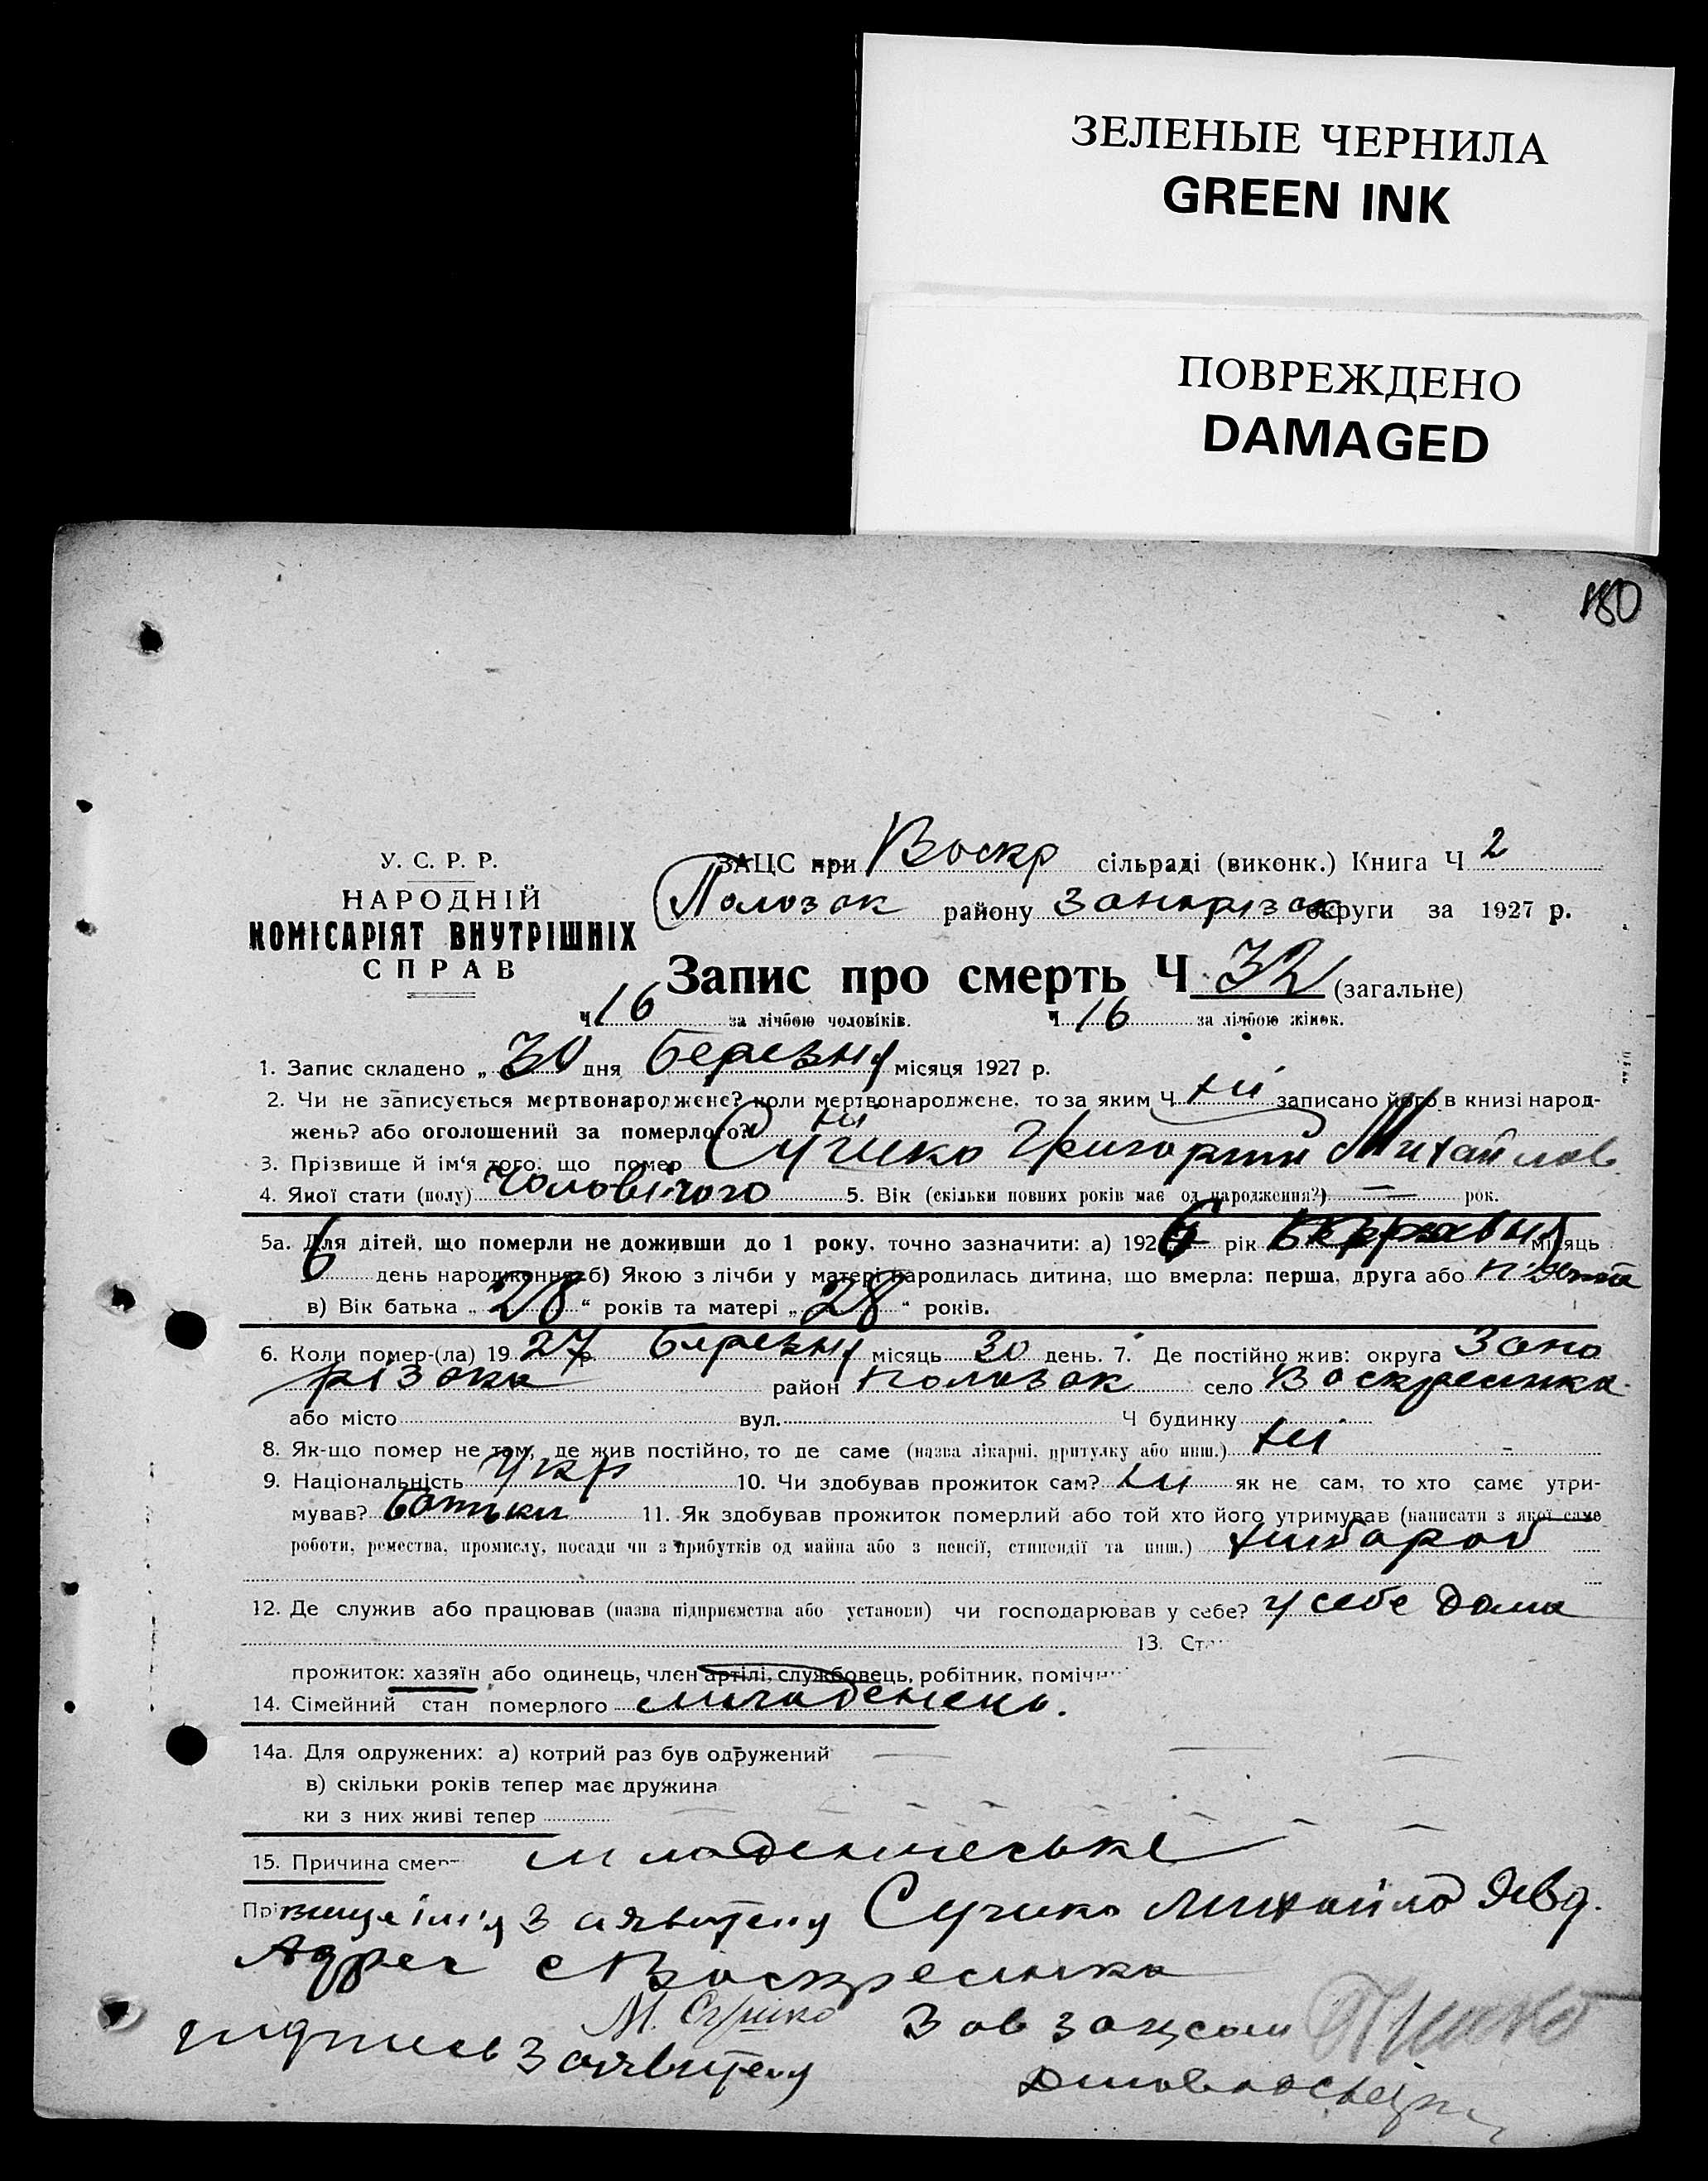 ЗЕЛЕНЫЕ ЧЕРНИЛА
GREEN INK
ПОВРЕЖДЕНО
DAMAGED
180
У. С. Р. Р.
НАРОДНІЙ
КОМІСАРІЯТ ВНУТРІШНІХ
СПРАВ
ЗАЦС при Воскр сільраді (виконк.) Книга Ч 2
Полозак району Запарізак округи за 1927 р.
Запис про смерть Ч 32 (загальне)
Ч 16 за лічбою чоловіків. Ч 16 за лічбою жінок.
1. Запис складено „ 30 дня березня місяця 1927 р.
2. Чи не записується мертвонароджене? коли мертвонароджене, то за яким Ч ні записано його в книзі народ-
жень? або оголошений за померлого? ні
3. Прізвище й ім‘я того, що помер Григорий Михайлов
4. Якої стати (полу) чоловічого 5. Вік (скільки повних років має од народження?) — рок.
5а. Для дітей, що померли не доживши до 1 року, точно зазначити: а) 192 рік місяць
6 день народження. б) Якою з лічби у матері народилась дитина, що вмерла: перша, друга або
в) Вік батька „ 28 “ років та матері „ 28 “ років.
6. Коли помер-(ла) 19 27 р. березня місяць 30 день. 7. Де постійно жив: округа Запо
різака район Полозак село Воскресинка
або місто вул. Ч будинку
8. Як-що помер не там, де жив постійно, то де саме (назва лікарні, притулку або инш.) ні
9. Національність укр 10. Чи здобував прожиток сам? ні як не сам, то хто саме утри-
мував? батьки 11. Як здобував прожиток померлий або той хто його утримував (написати з якої саме
роботи, ремества, промислу, посади чи з прибутків од майна або з пенсії, стипендії та инш.) хлібороб
12. Де служив або працював (назва підприємства або установи) чи господарював у себе? у себе дома
13. Ст
прожиток: хазяїн або одинець, член артілі, службовець, робітник, помічн
14. Сімейний стан померлого младенець.
14а. Для одружених: а) котрий раз був одружений
в) скільки років тепер має дружина
ки з них живі тепер
15. Причина смер младенческе
Прізвище ім'я заявителя Михайло Явд.
Адрес с Воскресинка
М.
Зав Зацсом
подпись заявителя